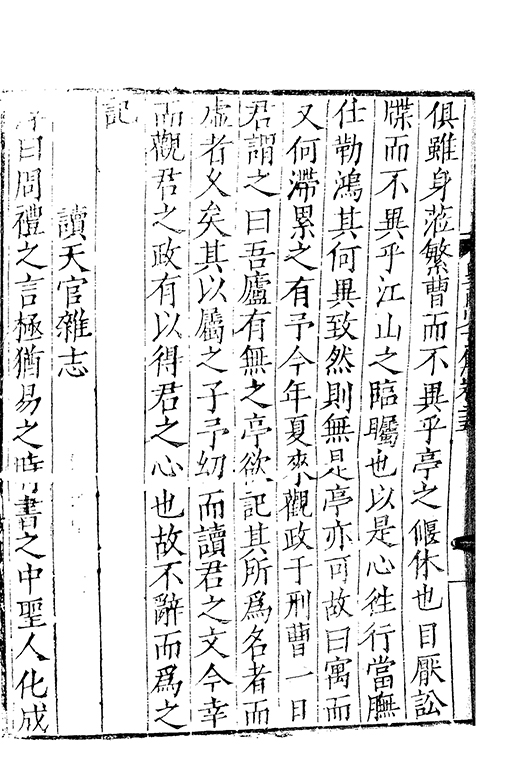 俱雖身蒞繁曹而不異乎亭之偃休也目厭訟
牒而不異乎江山之臨矚也以是心徃行當膴
仕勒鴻其何異致然則無是亭亦可故曰寓而
又何滯累之有予今年夏來觀政于刑曹一日
君謂之曰吾廬有無之亭欲記其所爲名者而
虛者久矣其以屬之子予幼而讀君之文今幸
而觀君之政有以得君之心也故不辭而爲之
記
讀天官雜志
曰周禮之言極猶易之時書之中聖人化成